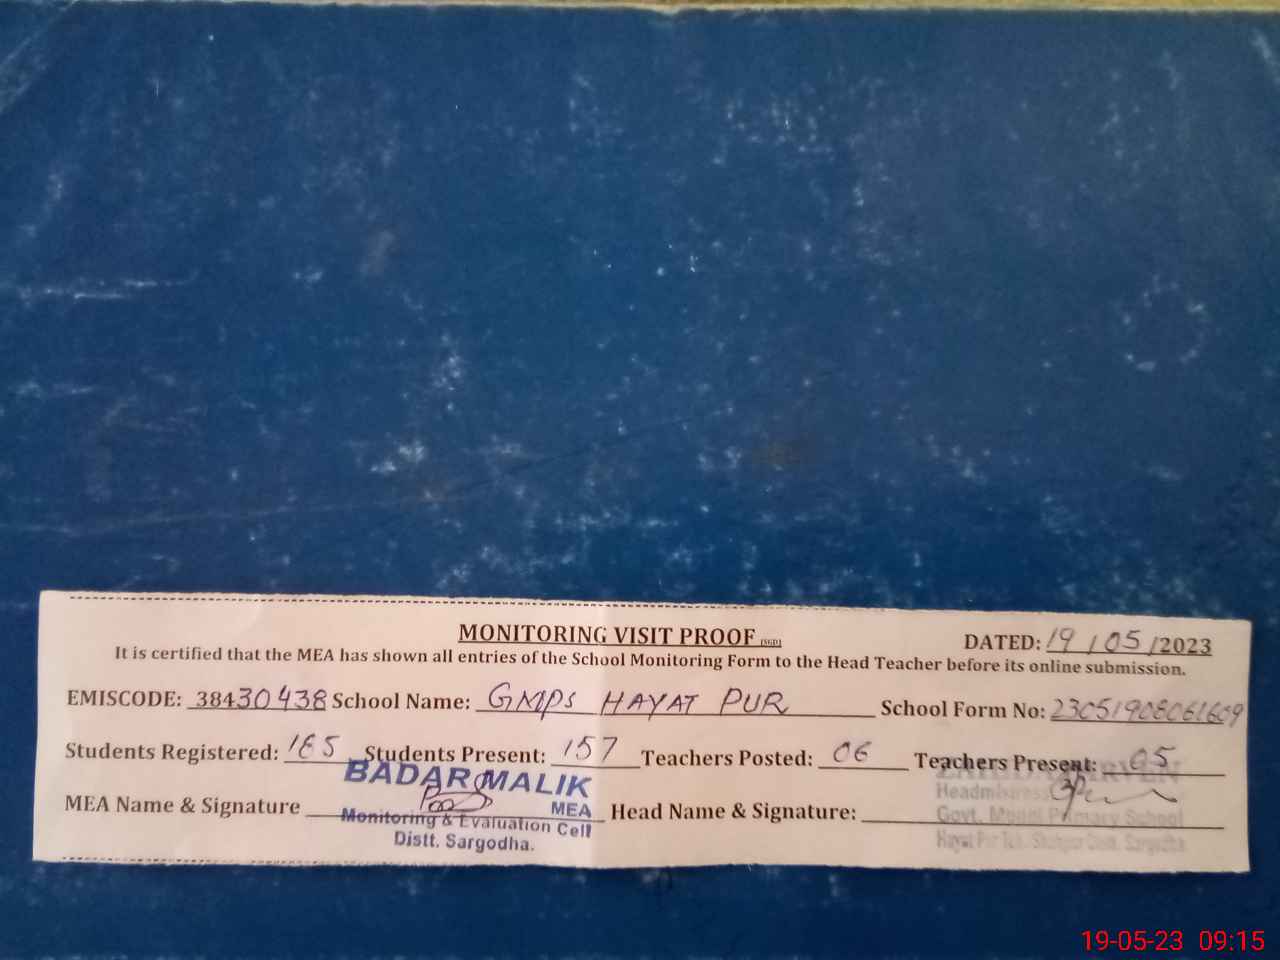 MONITORING VISIT PROOF (SGD)
DATED: 19/05/2023
It is certified that the MEA has shown all entries of the School Monitoring Form to the Head Teacher before its online submission.
EMISCODE: 38430438 School Name: GMPS HAYAT PUR School Form No:
Students Registered: Students Present: 157 Teachers Posted: 06 Teachers Present: 05
BADAR MALIK
MEA
MEA Name & Signature Head Name & Signature:
Monitoring & Evaluation Cell
Distt. Sargodha.
Headmistress
Govt. Primary School
Hayat Pur Teh. Shahpur Distt. Sargodha
19-05-23 09:15